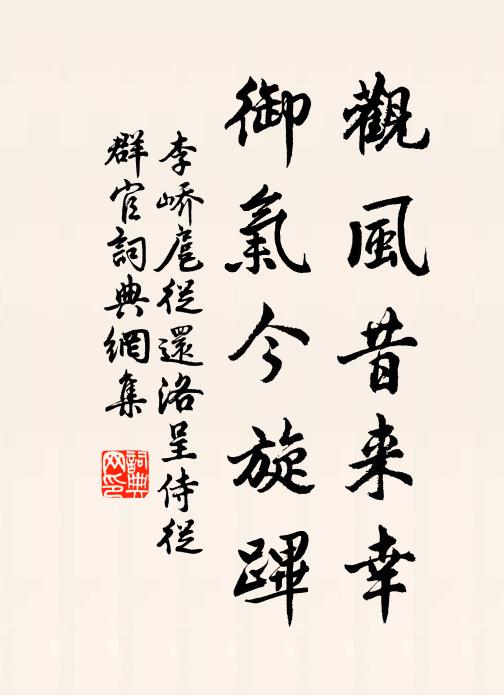 觀風昔来幸
御氣今旋蹕
李嶠扈從還洛呈侍從
群官詞典網集
詞典
网印